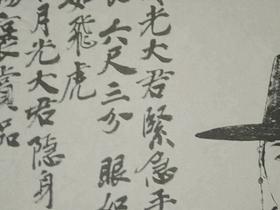 光大君緊急手
六尺三分 眼如
如飛虎
月光大君隐身
賞品